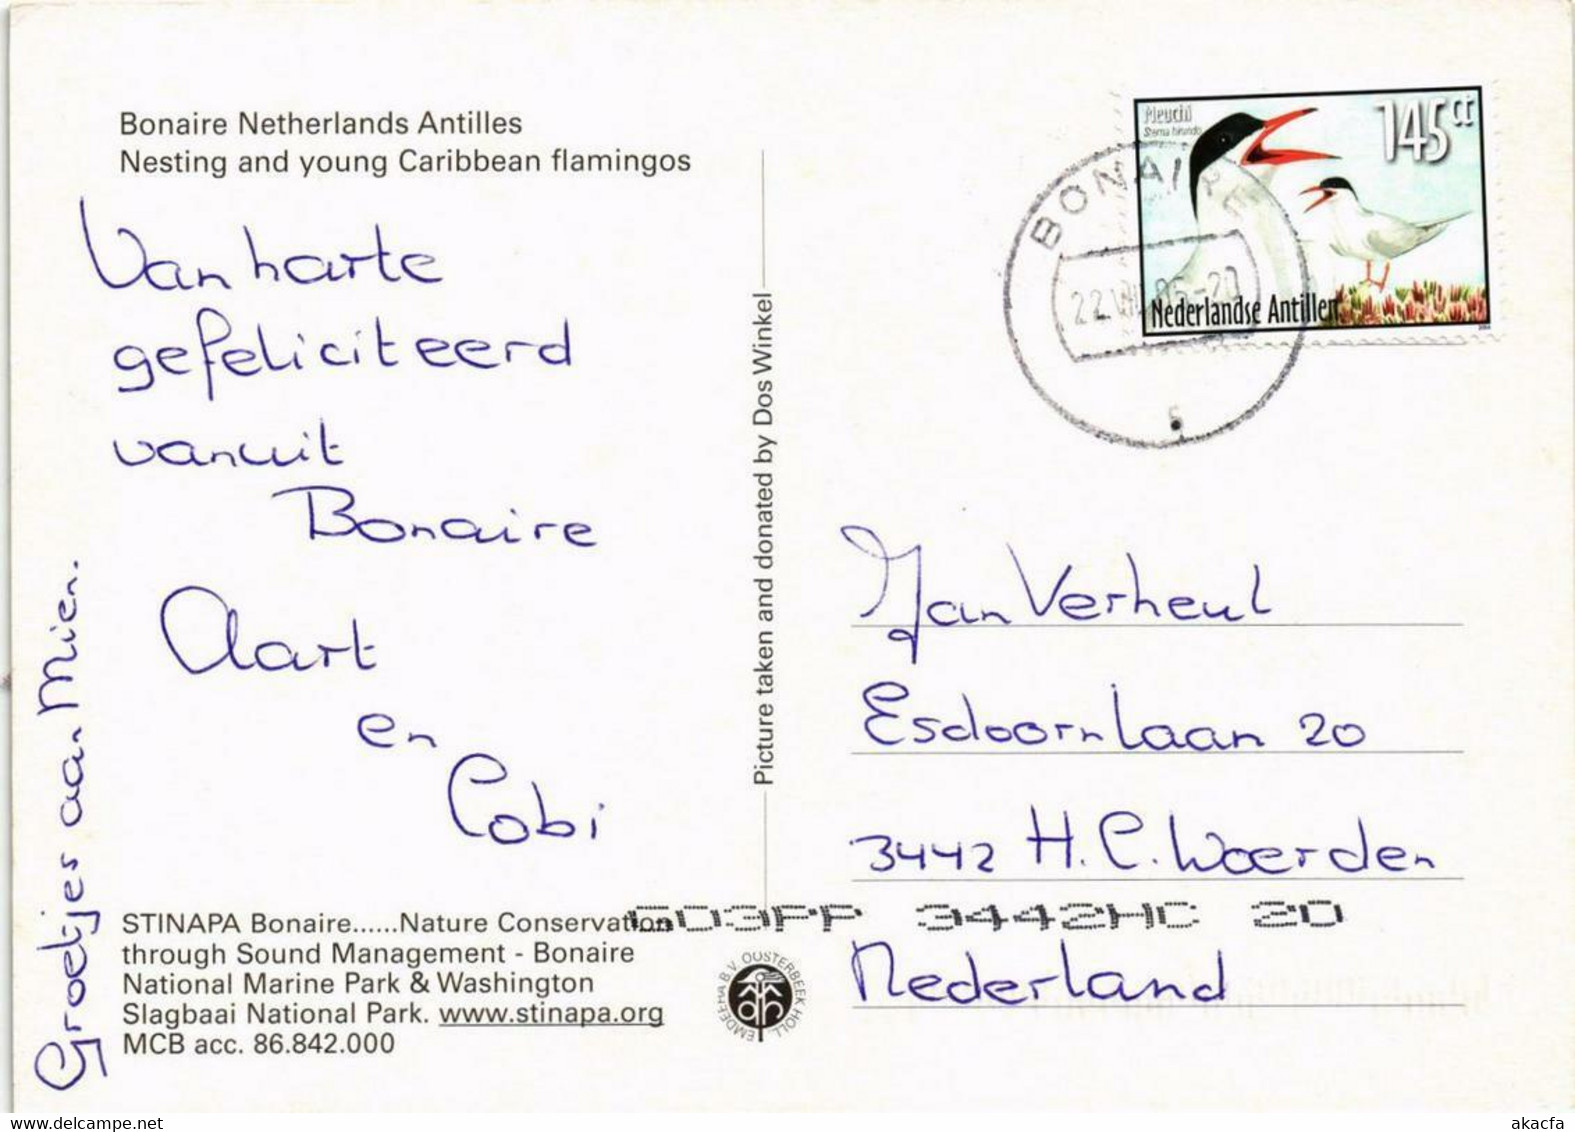 Bonaire Netherlands Antilles
Nesting and young Caribbean flamingos
Van harte
gefeliciteerd
vanuit
Bonaire
Aart
en
Cobi
Groetjes aan Mien.
STINAPA Bonaire......Nature Conservation
through Sound Management - Bonaire
National Marine Park & Washington
Slagbaai National Park. www.stinapa.org
MCB acc. 86.842.000
Picture taken and donated by Dos Winkel
EMDEEHA B.V. OOSTERBEEK HOLL.
Meuchi
Sterna hirundo
145ct
Nederlandse Antillen
BONAIRE
Jan Verheul
Esdoornlaan 20
3442 H.C. Woerden
603PP 3442HC 20
Nederland
www.delcampe.net
akacfa